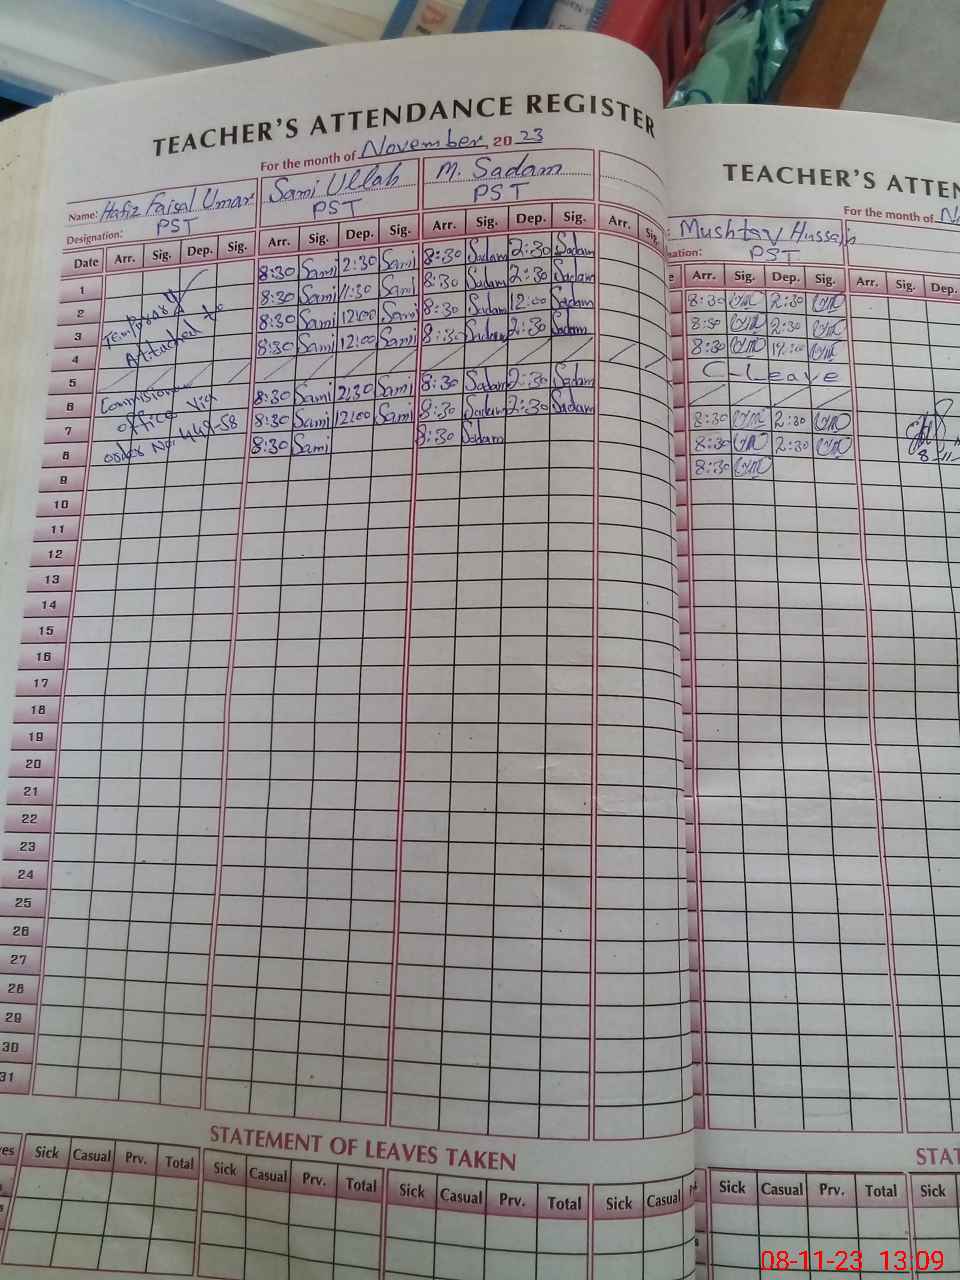 TEACHER'S ATTENDANCE REGISTER
For the month of November, 2023
Name: Hafiz Faisal Umar Sami Ullah M. Sadam
Designation: PST PST PST
Date Arr. Sig. Dep. Sig. Arr. Sig. Dep. Sig. Arr. Sig. Dep. Sig. Arr. Sig.
1 8:30 Sami 2:30 Sami 8:30 Sadam 2:30 Sadam
2 8:30 Sami 11:30 Sami 8:30 Sadam 2:30 Sadam
3 8:30 Sami 12:00 Sami 8:30 Sadam 12:00 Sadam
4 8:30 Sami 12:00 Sami 8:30 Sadam 2:30 Sadam
5
6 8:30 Sami 2:30 Sami 8:30 Sadam 2:30 Sadam
7 8:30 Sami 12:00 Sami 8:30 Sadam 2:30 Sadam
8 8:30 Sami 8:30 Sadam
Temporary
Attached to
Commisioner
office via
order No: 449-58
9
10
11
12
13
14
15
16
17
18
19
20
21
22
23
24
25
26
27
28
29
30
31
STATEMENT OF LEAVES TAKEN
Sick Casual Prv. Total Sick Casual Prv. Total Sick Casual Prv. Total Sick Casual
TEACHER'S ATTEN
For the month of N
Mushtaq Hussain
PST
Arr. Sig. Dep. Sig. Arr. Sig. Dep.
8:30 2:30
8:30 2:30
8:30 12:00
C-Leave
8:30 2:30
8:30 2:30
8:30
8-11-
STAT
Sick Casual Prv. Total Sick
08-11-23 13:09